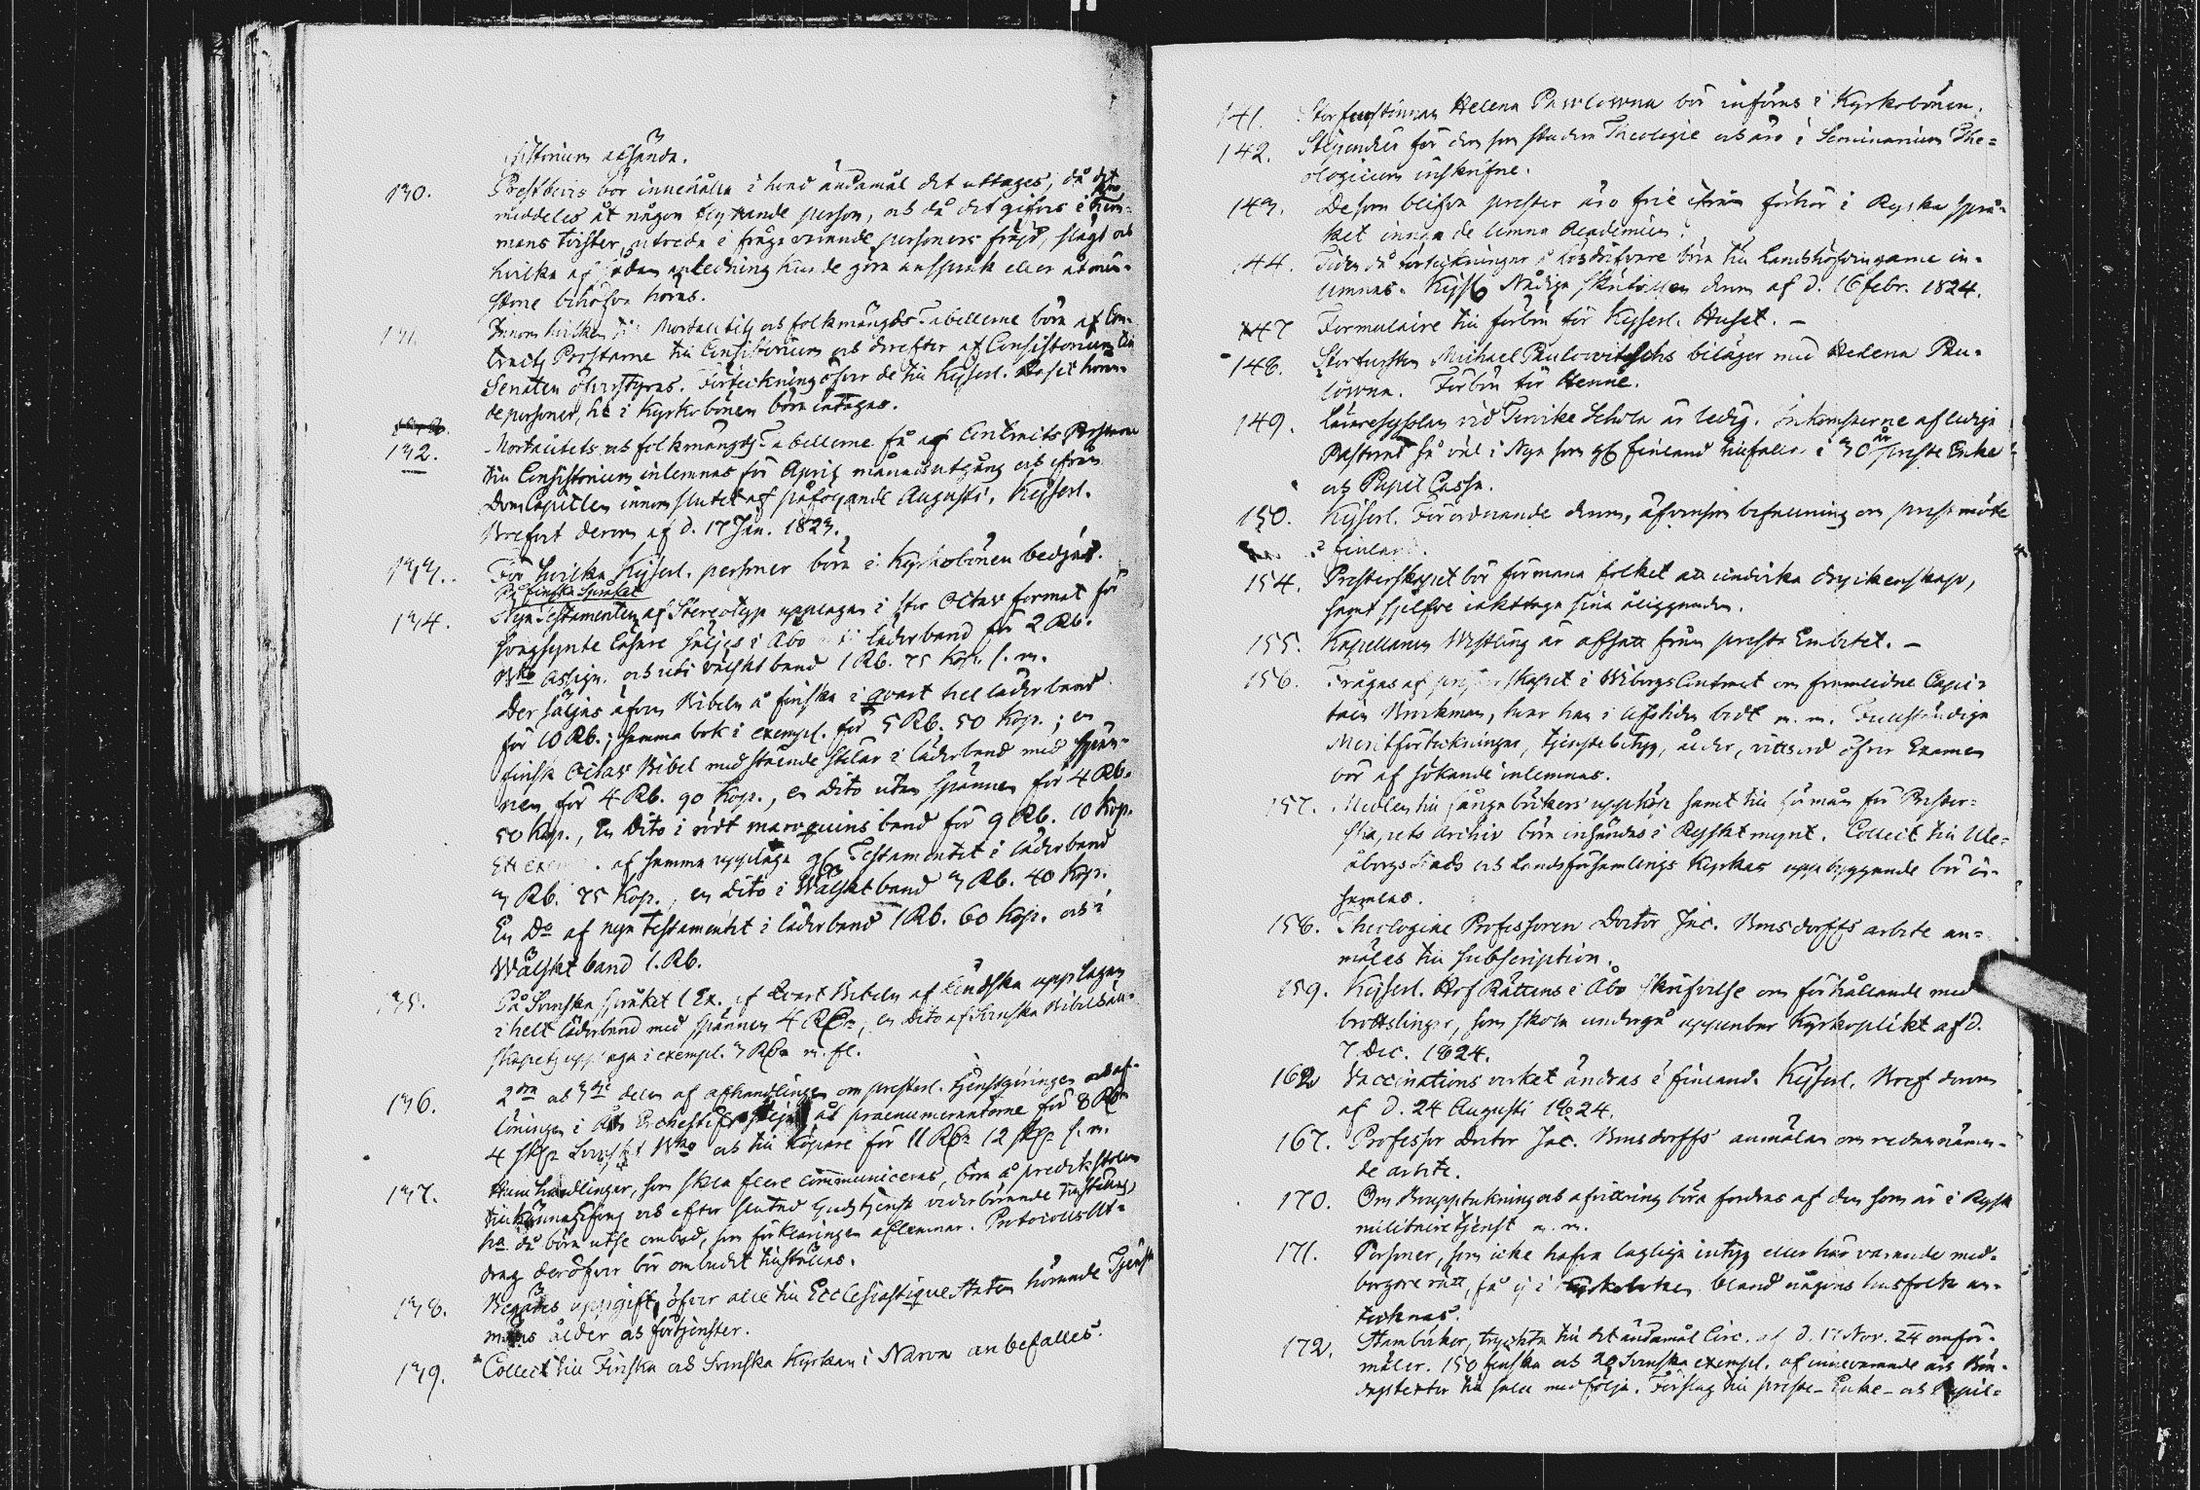 sistorium afsända.
130. Prestbevis bör innehålla i hvad ändamål det uttages, då det
meddeles åt någon flyttande person, och då det gifves i
mans tvister, utreda i fråga varande personers frejd, slägt och
hvilka af sådan anledning kunde göra anspråk eller
stone behöfva höras.
131. Inom hvilken tid Mortalitets och folkmängds Tabellerne böra af Con-
tracts Prostarne till Consistorium och derefter af Consistorium till
Senaten öfverstyras. Förteckning öfver de till Kejserl. Huset höran-
de personer, som i Kyrkobönen böra intagas.
132. Mortalitets och folkmängds Tabellerne få af Contracts Prostarne
till Consistorium inlemnas för Aprils månads utgång och ifrån
DomCapitlen innom slutet af påföljande Augusti. Kejserl.
Brefvet derom af d. 17 Jan. 1823.
133. För hvilka Kejserl. personer böra i Kyrkobönen bedjas.
På finska Språket
134. Nya Testamenten af Stereotyp upplagan i stor Octav format för
svagsynte läsare säljes i Åbo i läderband för 2 Rb.
Bko Assign. och uti välskt band 1 Rb. 75 Kop. s. m.
Der säljas äfven Bibeln å finska i qvart hel läderband
för 10 Rb.; samma bok i exempl. för 5 Rb. 50 Kop.; en
finsk Octav Bibel med stående stilar i läderband med spän-
nen för 4 Rb. 90 Kop., en Dito utan spännen för 4 Rb.
50 Kop., En Dito i rödt maroquins band för 9 Rb. 10 Kop.
Ett af samma upplaga Testamentet i läderband
3 Rb. 75 Kop., en Dito i Wälskt band 3 Rb. 40 Kop.
En Do af nya Testamentet i läderband 1 Rb. 60 Kop. och i
Wälskt band 1. Rb.
135. På Svenska Språket 1 Ex. af Qvart Bibeln af Lindska upplagan
i helt läderband med spännen 4 RD, en Dito af Svenska Bibelsäll-
skapets upplaga i exempl. 3 RD m. fl.
136. 2dra och 3dje delen af afhandlingen om presterl. tjenstgöringen och af-
löningen i Åbo Erchestift åt praenumeranterne för 8 RD
4 sk Svenskt Bko och till köpare för 11 RD 12 sk s. m.
137. Handlingar, som skola flere communiceras, böra å predikstolen
tillkännagifvas och efter slutad Gudstjenst vederbörande tillställas,
då böra utse ombud, som förklaringen aflemnar. Protocolls Ut-
drag deröfver bör ombudet tillställas.
138. Begäres uppgift öfver alle till Ecclesiastique Staten hörande Tjenste
mäns ålder och förtjenster.
139. Collect till Finska och Svenska Kyrkan i Narva anbefalles.
141. Storfurstinnan Helena Pawlowna bör införas i Kyrkobönen.
142. Stipendier för dem som studera Theologie och äro i Seminarium The-
ologicum inskrifne.
143. De som blifva prester äro frie ifrån förhör i Ryska språ-
ket innan de lemna Academien.
144. Tiden då förteckningar på lösdrifvare böra till Landshöfdingarne in-
lemnas. Kejs. Nådiga skrifvelsen derom af d. 16 febr. 1824.
147 Formulaire till förbön för Kejserl. Huset. –
148. Storfursten Michael Paulowitschs biläger med Helena Pau-
lowna. Förbön för Henne.
149. Läraresysslan vid Tervike Schola är ledig. Inkomsterne af ledige
Pastorat så väl i Nya som gl. Finland tillfaller i 30 år preste Enke
och Pupil Cassa.
150. Kejserl. Förordnande derom, äfvensom befallning om prestmöte
i Finland.
154. Presterskapet bör förmana folket att undvika dryckenskap,
samt sjelfve iakttaga sina åligganden.
155. Kapellanen Westling är afsatt från preste Embetet. –
156. Frågas af presterskapet i Wiborgs Contract om framlidne Capi-
tain Brinkman, hvar han i lifstiden bodt m. m. Fullständiga
Meritförteckningar, tjenstebetyg, ålder, vittsord öfver Examen
bör af sökande inlemnas.
157. Medlen till sånge böckers uppköp samt till förmån för Prester-
skapets Archiv böra insändas i Ryskt mynt. Collect till Ule-
åborgs Stads och Landsförsamlings Kyrkas uppbyggande bör in-
samlas.
158. Theologiae Professoren Doctor Jac. Bonsdorffs arbete an-
mäles till subscription.
159. Kejserl. Hof Rättens i Åbo skrifvelse om förhållande med
brottslingar, som skola undergå uppenbar Kyrkoplikt af d.
7. Dec. 1824.
162 Vaccinations verket ändras i finland. Kejserl. Bref derom
af d. 24 Augusti 1824.
167. Professor Doctor Jac. Bonsdorffs anmälan om redannämn-
de arbete.
170. Om böra fordras af den som är i Rysk
militaire tjenst m. m.
171. Personer, som icke hafva lagliga intyg eller här varande med-
borgare rätt, få ej i Kyrkoboken bland någons husfolk an-
tecknas.
172. Stamböcker, tryckta till det ändamål Circ. af d. 17 Nov. 24 omför-
mäler. 150 finska och 20 Svenska exempl. af innevarande års Bön-
dagstexter till salu medfölja. Förslag till preste- Enke- och Pupil-